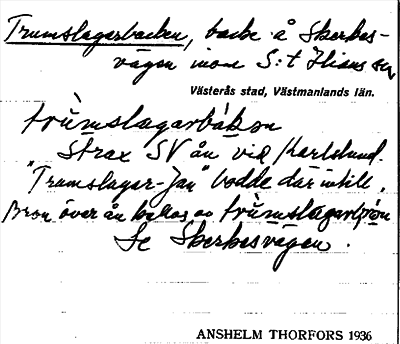 Trumslagarbacken, backe å Skerbes-
vägen inom S:t Ilians sn,
Västerås stad, Västmanlands län.
trùmslagarbákən
Strax SV ån vid Karlslund.
"Trumslagar-Jan" bodde där intill.
Bron över ån kallas av trùmslagarbrón
Se Skerbesvägen.
ANSHELM THORFORS 1936